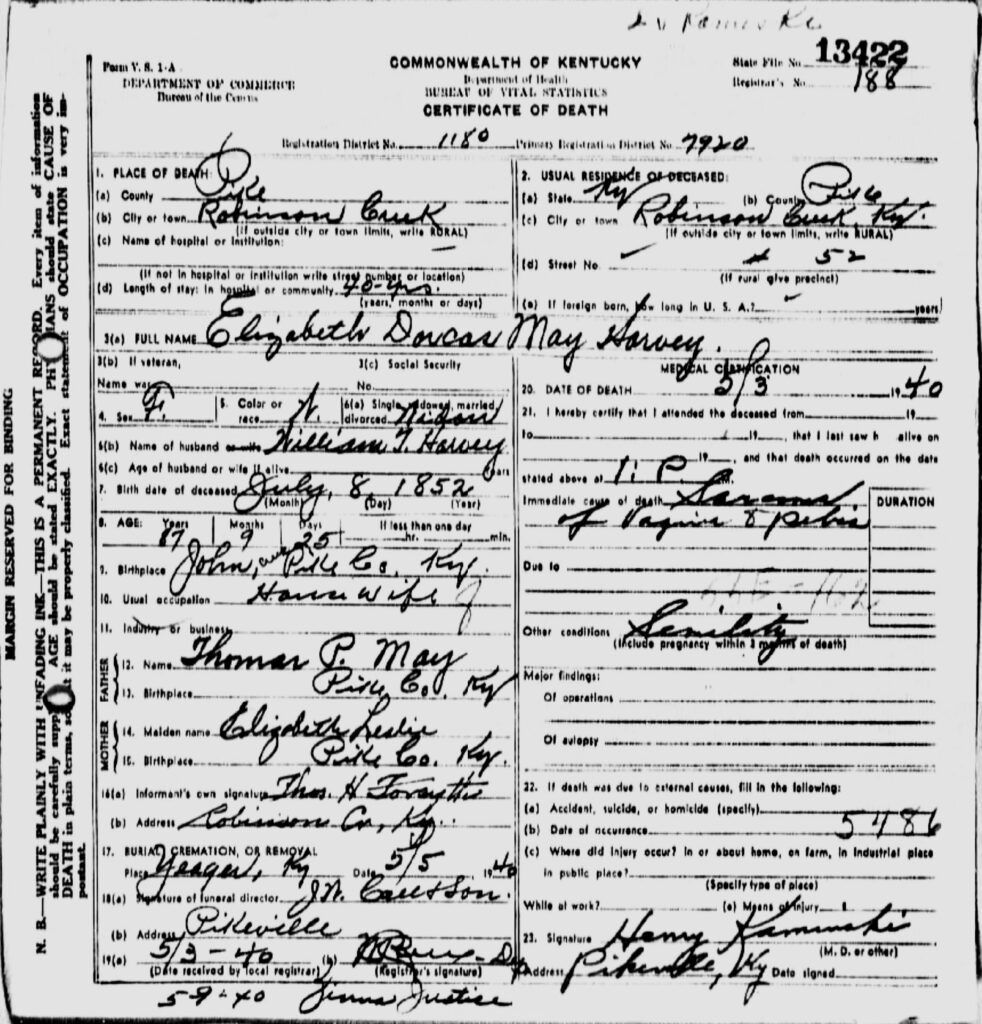 13422
Form V. S. 1-A
COMMONWEALTH OF KENTUCKY
State File No.
DEPARTMENT OF COMMERCE
Department of Health
Registrar's No. 188
Bureau of the Census
BUREAU OF VITAL STATISTICS
CERTIFICATE OF DEATH
Registration District No. 1180 Primary Registration District No. 7920
1. PLACE OF DEATH:
(a) County Pike
(b) City or town Robinson Creek
(If outside city or town limits, write RURAL)
(c) Name of hospital or institution:
(If not in hospital or institution write street number or location)
(d) Length of stay: In hospital or community 40-yrs.
(years, months or days)
2. USUAL RESIDENCE OF DECEASED:
(a) State Ky (b) County Pike
(c) City or town Robinson Creek, Ky.
(If outside city or town limits, write RURAL)
(d) Street No. # 52
(If rural give precinct)
(e) If foreign born, how long in U. S. A.? years
3(a) FULL NAME Elizabeth Dorcas May Harvey.
3(b) If veteran, 3(c) Social Security
Name war No.
4. Sex F. 5. Color or race W. 6(a) Single, widowed, married, divorced Widow
6(b) Name of husband or wife William T. Harvey
6(c) Age of husband or wife if alive years
7. Birth date of deceased July, 8, 1852
(Month) (Day) (Year)
8. AGE: Years Months Days If less than one day
87 9 25 hr. min.
9. Birthplace Pike Co. Ky.
10. Usual occupation House wife
11. Industry or business
FATHER
12. Name Thomas P. May
13. Birthplace Pike Co. Ky
MOTHER
14. Maiden name Elizabeth Leslie
15. Birthplace Pike Co. Ky.
16(a) Informant's own signature Thos. H. Forsythe
(b) Address Robinson Cr, Ky.
17. BURIAL, CREMATION, OR REMOVAL
Place Yeager, Ky Date 5/5 1940
18(a) Signature of funeral director J.W. Call & Son.
(b) Address Pikeville
19(a) 5/3-40 (b)
(Date received by local registrar) (Registrar's signature)
5-9-40 Justice
MEDICAL CERTIFICATION
20. DATE OF DEATH 5/3 1940
21. I hereby certify that I attended the deceased from 19
to 19 , that I last saw h alive on
19 , and that death occurred on the date
stated above at 1. P. M.
Immediate cause of death Sarcoma
of Vagina & pelvis
DURATION
Due to
Other conditions Senility
(Include pregnancy within 3 months of death)
Major findings:
Of operations
Of autopsy
22. If death was due to external causes, fill in the following:
(a) Accident, suicide, or homicide (specify)
(b) Date of occurrence 5486
(c) Where did injury occur? In or about home, on farm, in industrial place
in public place?
(Specify type of place)
While at work? (e) Means of injury
23. Signature Henry Kaminski
(M. D. or other)
Address Pikeville, Ky Date signed
MARGIN RESERVED FOR BINDING
N. B.—WRITE PLAINLY WITH UNFADING INK—THIS IS A PERMANENT RECORD. Every item of information
should be carefully supplied. AGE should be stated EXACTLY. PHYSICIANS should state CAUSE OF
DEATH in plain terms, so that it may be properly classified. Exact statement of OCCUPATION is very im-
portant.